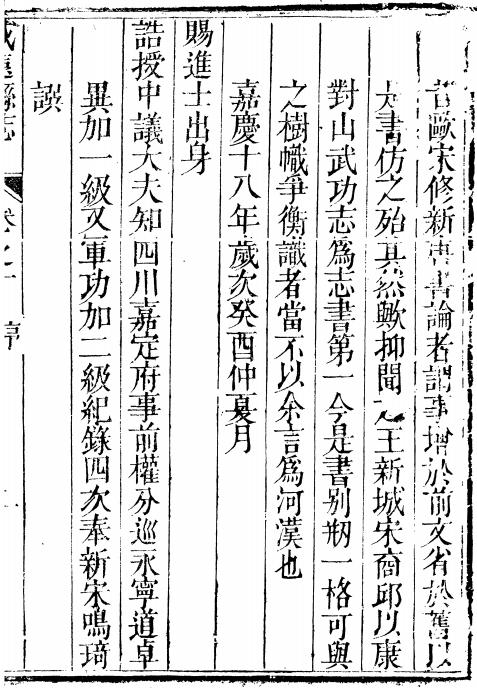 昔歐宋修新唐書論者謂事增於前文省於舊以
是書仿之殆其然歟抑聞之王新城宋商邱以康
對山武功志爲志書第一今是書别剏一格可與
之樹幟爭衡識者當不以余言爲河漢也
嘉慶十八年歲次癸酉仲夏月
賜進士出身
誥授中議大夫知四川嘉定府事前權分巡永寧道卓
異加一級又軍功加二級紀錄四次奉新宋鳴琦
誤
威遠縣志
卷之一
序